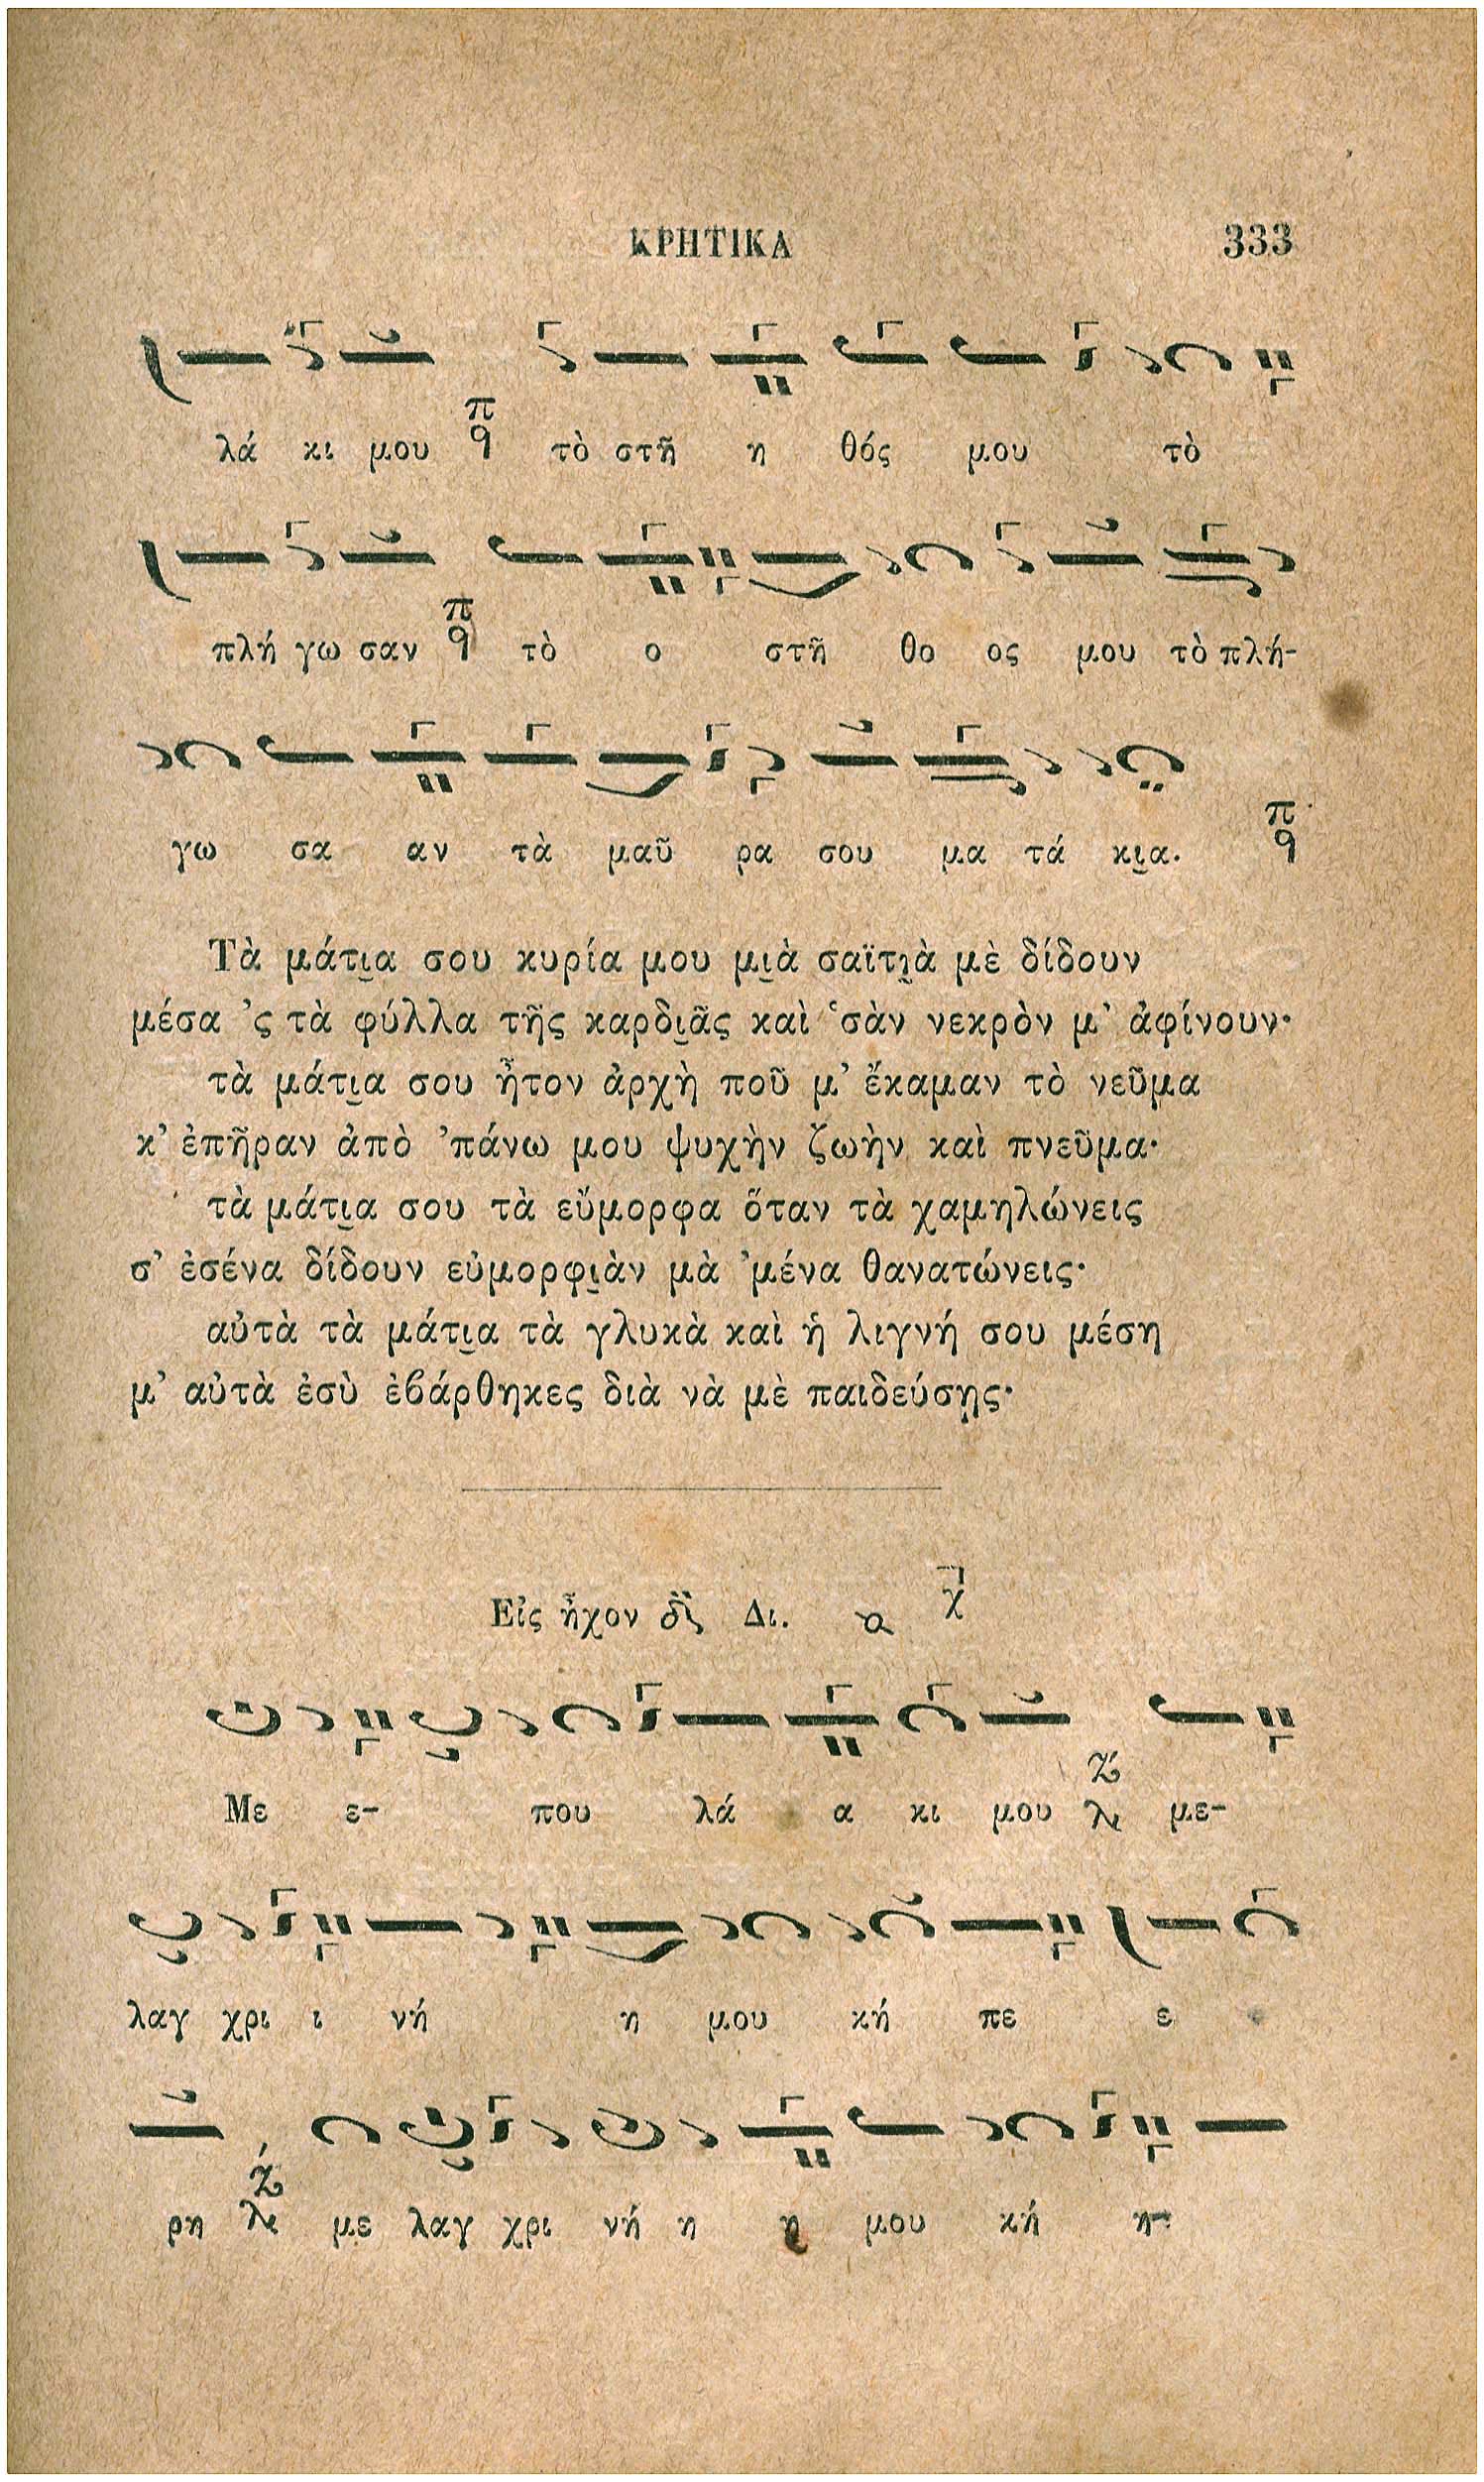 ΚΡΗΤΙΚΑ 333
λά κι μου π q τὸ στῆ η θός μου τὸ
πλή γω σαν π q τὸ ο στῆ θο ος μου τὸ πλή-
γω σα αν τὰ μαῦ ρα σου μα τά κι̮α. π q
Τὰ μάτι̮α σου κυρία μου μι̮ὰ σαϊτι̮ὰ μὲ δίδουν
μέσα 'ς τὰ φύλλα τῆς καρδι̮ᾶς καὶ ʽσὰν νεκρὸν μ' ἀφίνουν·
τὰ μάτι̮α σου ἦτον ἀρχὴ ποῦ μ' ἔκαμαν τὸ νεῦμα
κ' ἐπῆραν ἀπὸ 'πάνω μου ψυχὴν ζωὴν καὶ πνεῦμα·
τὰ μάτι̮α σου τὰ εὔμορφα ὅταν τὰ χαμηλώνεις
σ' ἐσένα δίδουν εὐμορφι̮ὰν μὰ 'μένα θανατώνεις·
αὐτὰ τὰ μάτι̮α τὰ γλυκὰ καὶ ἡ λιγνή σου μέση
μ' αὐτὰ ἐσὺ ἐβάρθηκες διὰ νὰ μὲ παιδεύσῃς·
Εἰς ἦχον Δι. χ
Με ε- που λά α κι μου με-
λαγ χρι ι νή η μου κή πε ε
ρη με λαγ χρι νή η η μου κή η-